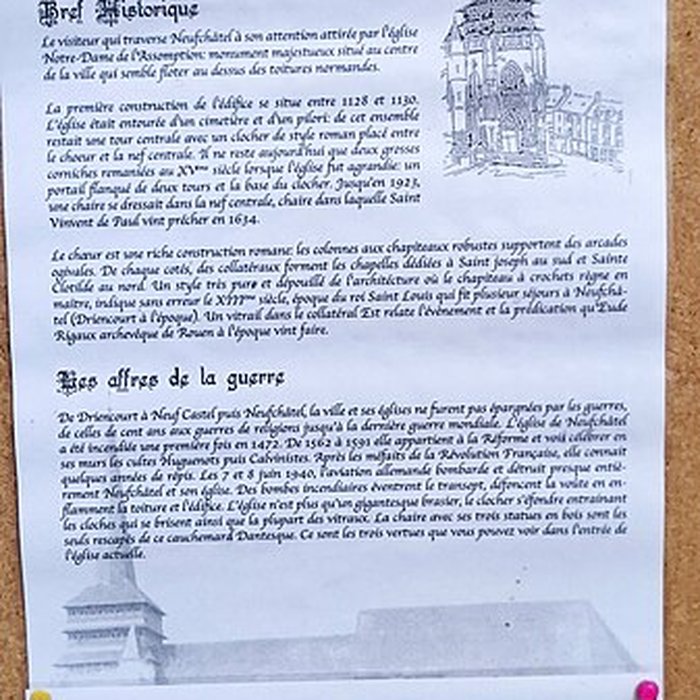 Bref Historique
Le visiteur qui traverse Neufchâtel à son attention attirée par l'église
Notre-Dame de l'Assomption: monument majestueux situé au centre
de la ville qui semble floter au dessus des toitures normandes.
La première construction de l'édifice se situe entre 1128 et 1130.
L'église était entourée d'un cimetière et d'un pilori: de cet ensemble
restait une tour centrale avec un clocher de style roman placé entre
le choeur et la nef centrale. Il ne reste aujourd'hui que deux grosses
corniches remaniées au XVème siècle lorsque l'église fut agrandie: un
portail flanqué de deux tours et la base du clocher. Jusqu'en 1923,
une chaire se dressait dans la nef centrale, chaire dans laquelle Saint
Vinvent de Paul vint prêcher en 1634.
Le chœur est une riche construction romane: les colonnes aux chapiteaux robustes supportent des arcades
ogivales. De chaque cotés, des collatéraux forment les chapelles dédiées à Saint joseph au sud et Sainte
Clotilde au nord. Un style très pure et dépouillé de l'architecture où le chapiteau à crochets règne en
maître, indique sans erreur le XIIIème siècle, époque du roi Saint Louis qui fit plusieur séjours à Neufchâ-
tel (Driencourt à l'époque). Un vitrail dans le collatéral Est relate l'évènement et la prédication qu'Eude
Rigaux archevêque de Rouen à l'époque vint faire.
Les affres de la guerre
De Driencourt à Neuf Castel puis Neufchâtel, la ville et ses églises ne furent pas épargnées par les guerres,
de celles de cent ans aux guerres de religions jusqu'à la dernière guerre mondiale. L'église de Neufchâtel
a été incendiée une première fois en 1472. De 1562 à 1591 elle appartient à la Réforme et voiś célébrer en
ses murs les cultes Huguenots puis Calvinistes. Après les méfaits de la Révolution Française, elle connait
quelques années de répis. Les 7 et 8 juin 1940, l'aviation allemande bombarde et détruit presque entiè-
rement Neufchâtel et son église. Des bombes incendiaires éventrent le transept, défoncent la voûte en en-
flammant la toiture et l'édifice. L'église n'est plus qu'un gigantesque brasier, le clocher s'éfondre entrainant
les cloches qui se brisent ainsi que la plupart des vitraux. La chaire avec ses trois statues en bois sont les
seuls rescapés de ce cauchemard Dantesque. Ce sont les trois vertues que vous pouvez voir dans l'entrée de
l'église actuelle.